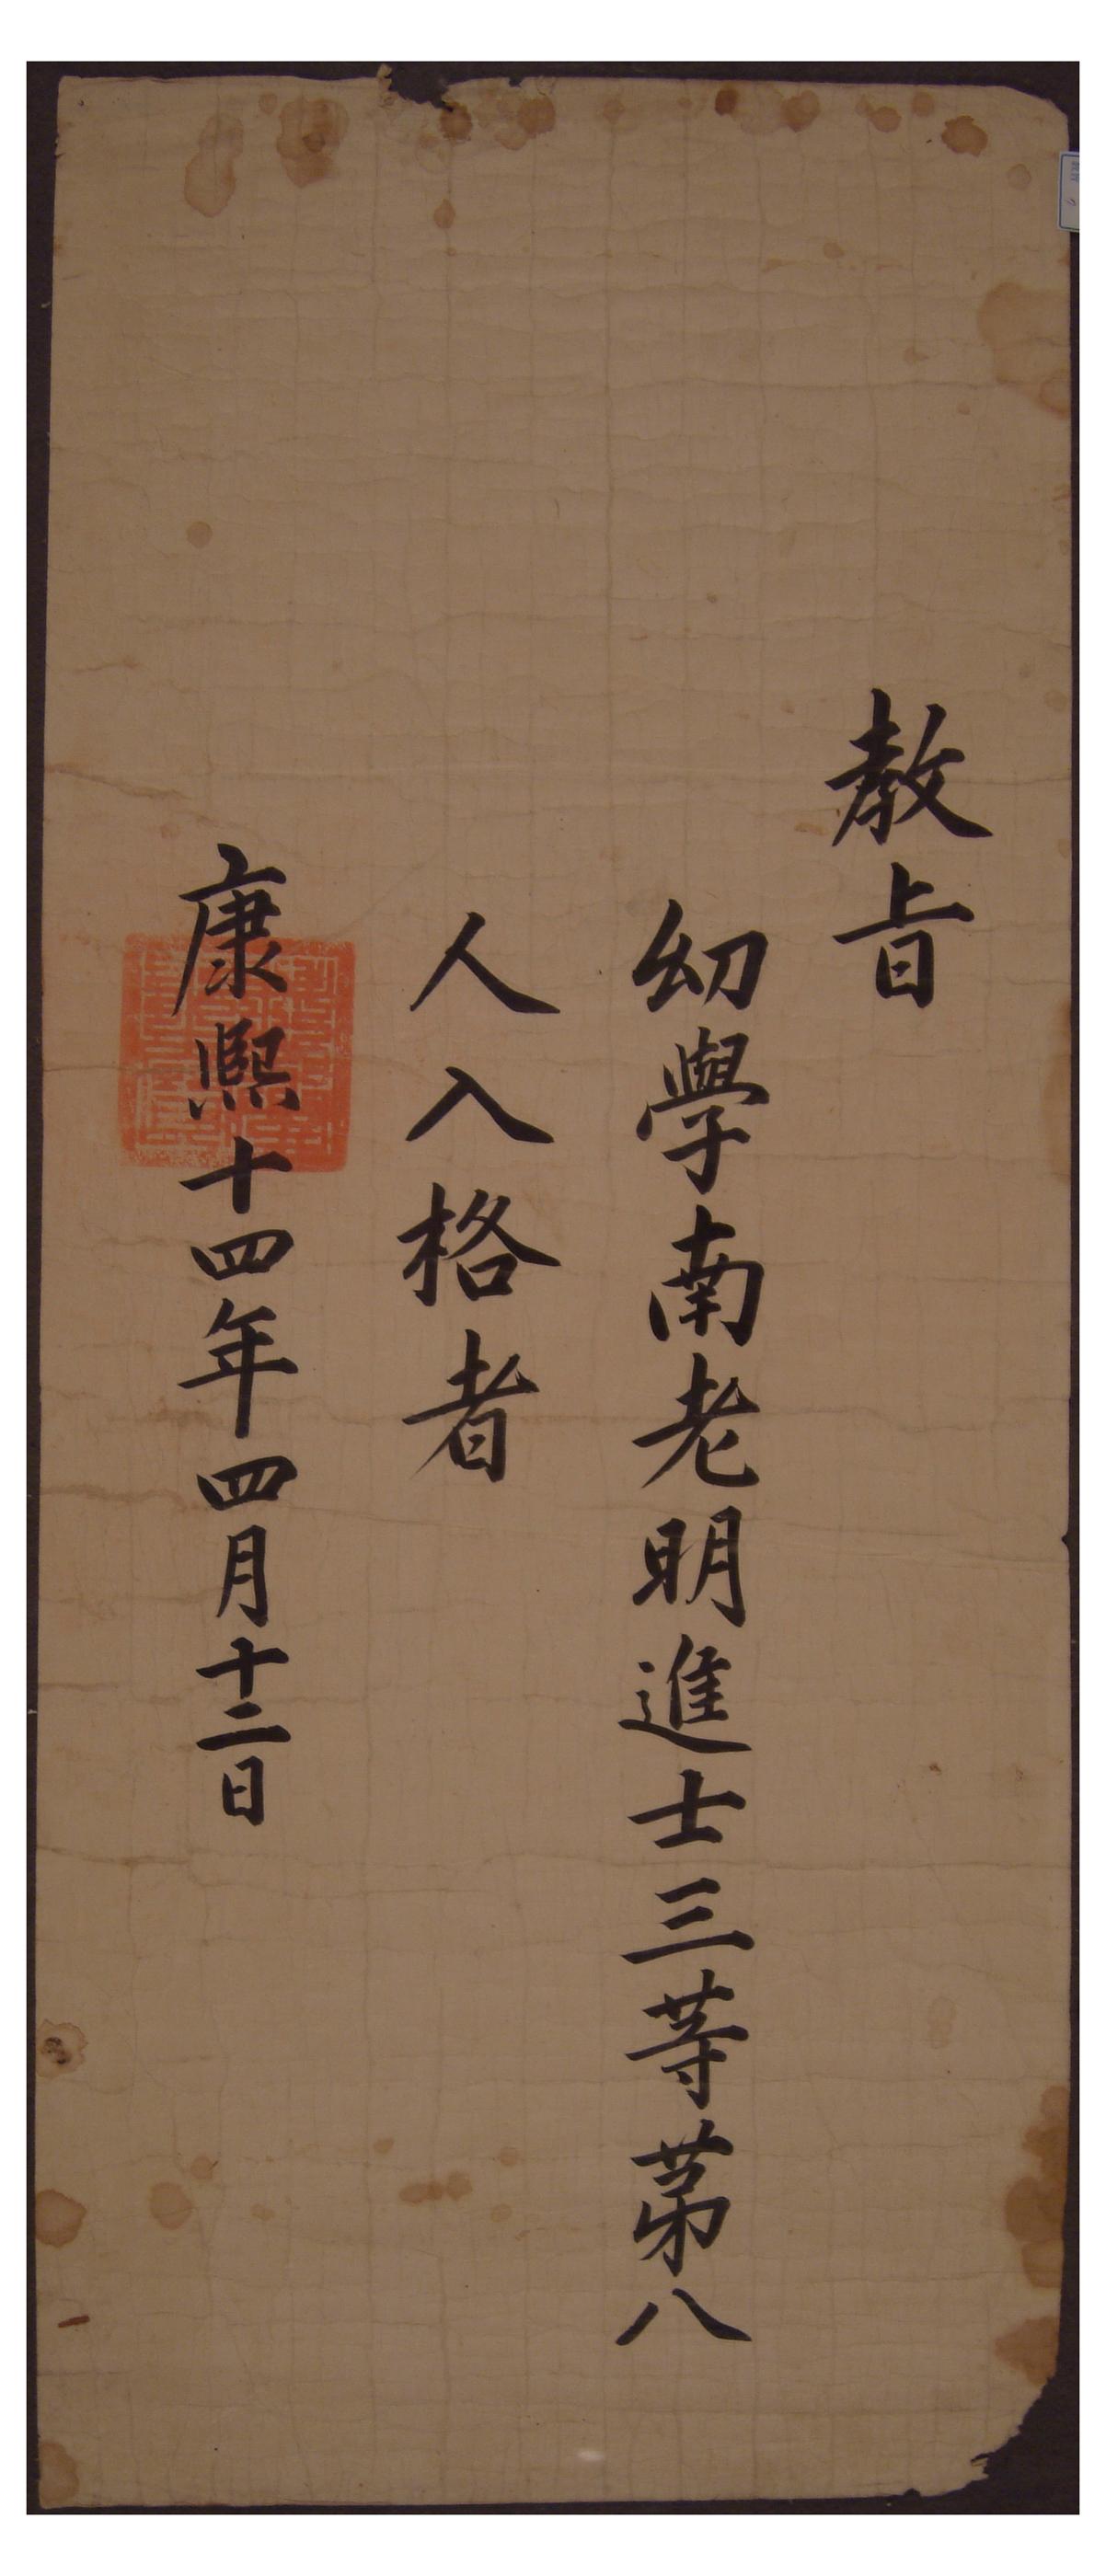 教旨
幼學南老明進士三等第八
人入格者
康熙十四年四月十二日